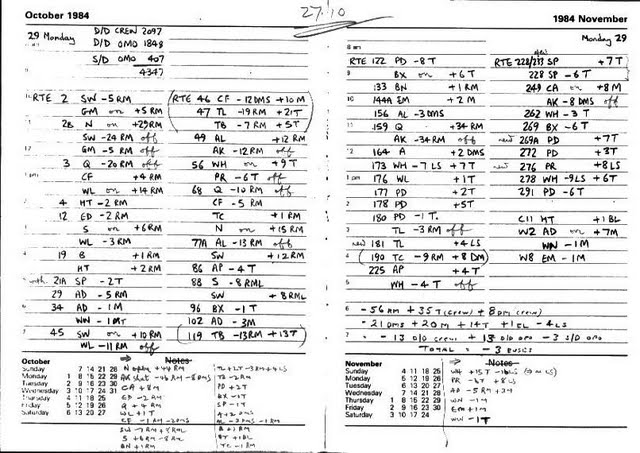 October 1984
27.10
29 Monday
D/D CREW 2097
D/D OMO 1848
S/D OMO 407
4347
RTE 2 SW -5RM
GM on +5RM
2B N on +29RM
SW -24RM off
GM -5RM off
3 Q -20RM off
CF +4RM
WL on +14RM
4 HT -2RM
12 ED -2RM
S on +6RM
WL -3RM
19 B +1RM
HT +2RM
21A SP -2T
29 AD -5RM
34 AD -1M
WN -1MT
45 SW on +10RM
WL -11RM off
RTE 46 CF -12DMS +10M
47 TL -19RM +21T
TB -7RM +5T
49 AL +12RM
AK -12RM off
56 WH on +9T
PR -6T off
68 Q -10RM off
CF -5RM
TC +1RM
N on +15RM
77A AL -13RM off
SW +12RM
86 AP -4T
88 S -8RML
SW +8RML
96 BX -1T
102 AD -3M
119 TB -13RM +13T
October
Sunday 7 14 21 28
Monday 1 8 15 22 29
Tuesday 2 9 16 23 30
Wednesday 3 10 17 24 31
Thursday 4 11 18 25
Friday 5 12 19 26
Saturday 6 13 20 27
Notes
CA +8M
ED -2RM
Q +4RM
WL +1T
S +6RM -8RM
BN +1RM
PD +2T
BX -1T
SP -1T
A +2DMS
B +1RM
HT +1BL
TC -1RM
1984 November
Monday 29
8 am
RTE 122 PD -8T
BX on +6T
133 BN +1RM
144A EM +2M
156 AL -3DMS
159 Q +34RM
AK -34RM off
164 A +2DMS
173 WH -7LS +7T
176 WL +1T
177 PD +2T
178 PD +5T
180 PD -1T
TL -3RM off
new 181 TL +4LS
190 TC -9RM +8DM
225 AP +4T
WH -4T off
RTE 228/233 SP +7T
228 SP -6T
249 CA on +8M
AK -8DMS off
262 WH -3T
269 BX -6T
new 269A PD +7T
272 PD +3T
new 276 PR +8LS
278 WH -9LS +6T
291 PD -6T
C11 HT +1BL
W2 AD on +7M
WN -1M
W8 EM -1M
-56RM +35T (CREW) +8DM (CREW)
-21DMS +20M +14T +1BL -4LS
-13 D/D CREW +13 D/D OMO -3 S/D OMO
TOTAL = -3 BUSES
November
Sunday 4 11 18 25
Monday 5 12 19 26
Tuesday 6 13 20 27
Wednesday 7 14 21 28
Thursday 1 8 15 22 29
Friday 2 9 16 23 30
Saturday 3 10 17 24
Notes
PR -6T +8LS
AD -5RM +3M
WN -1M
EM +1M
WN -1T